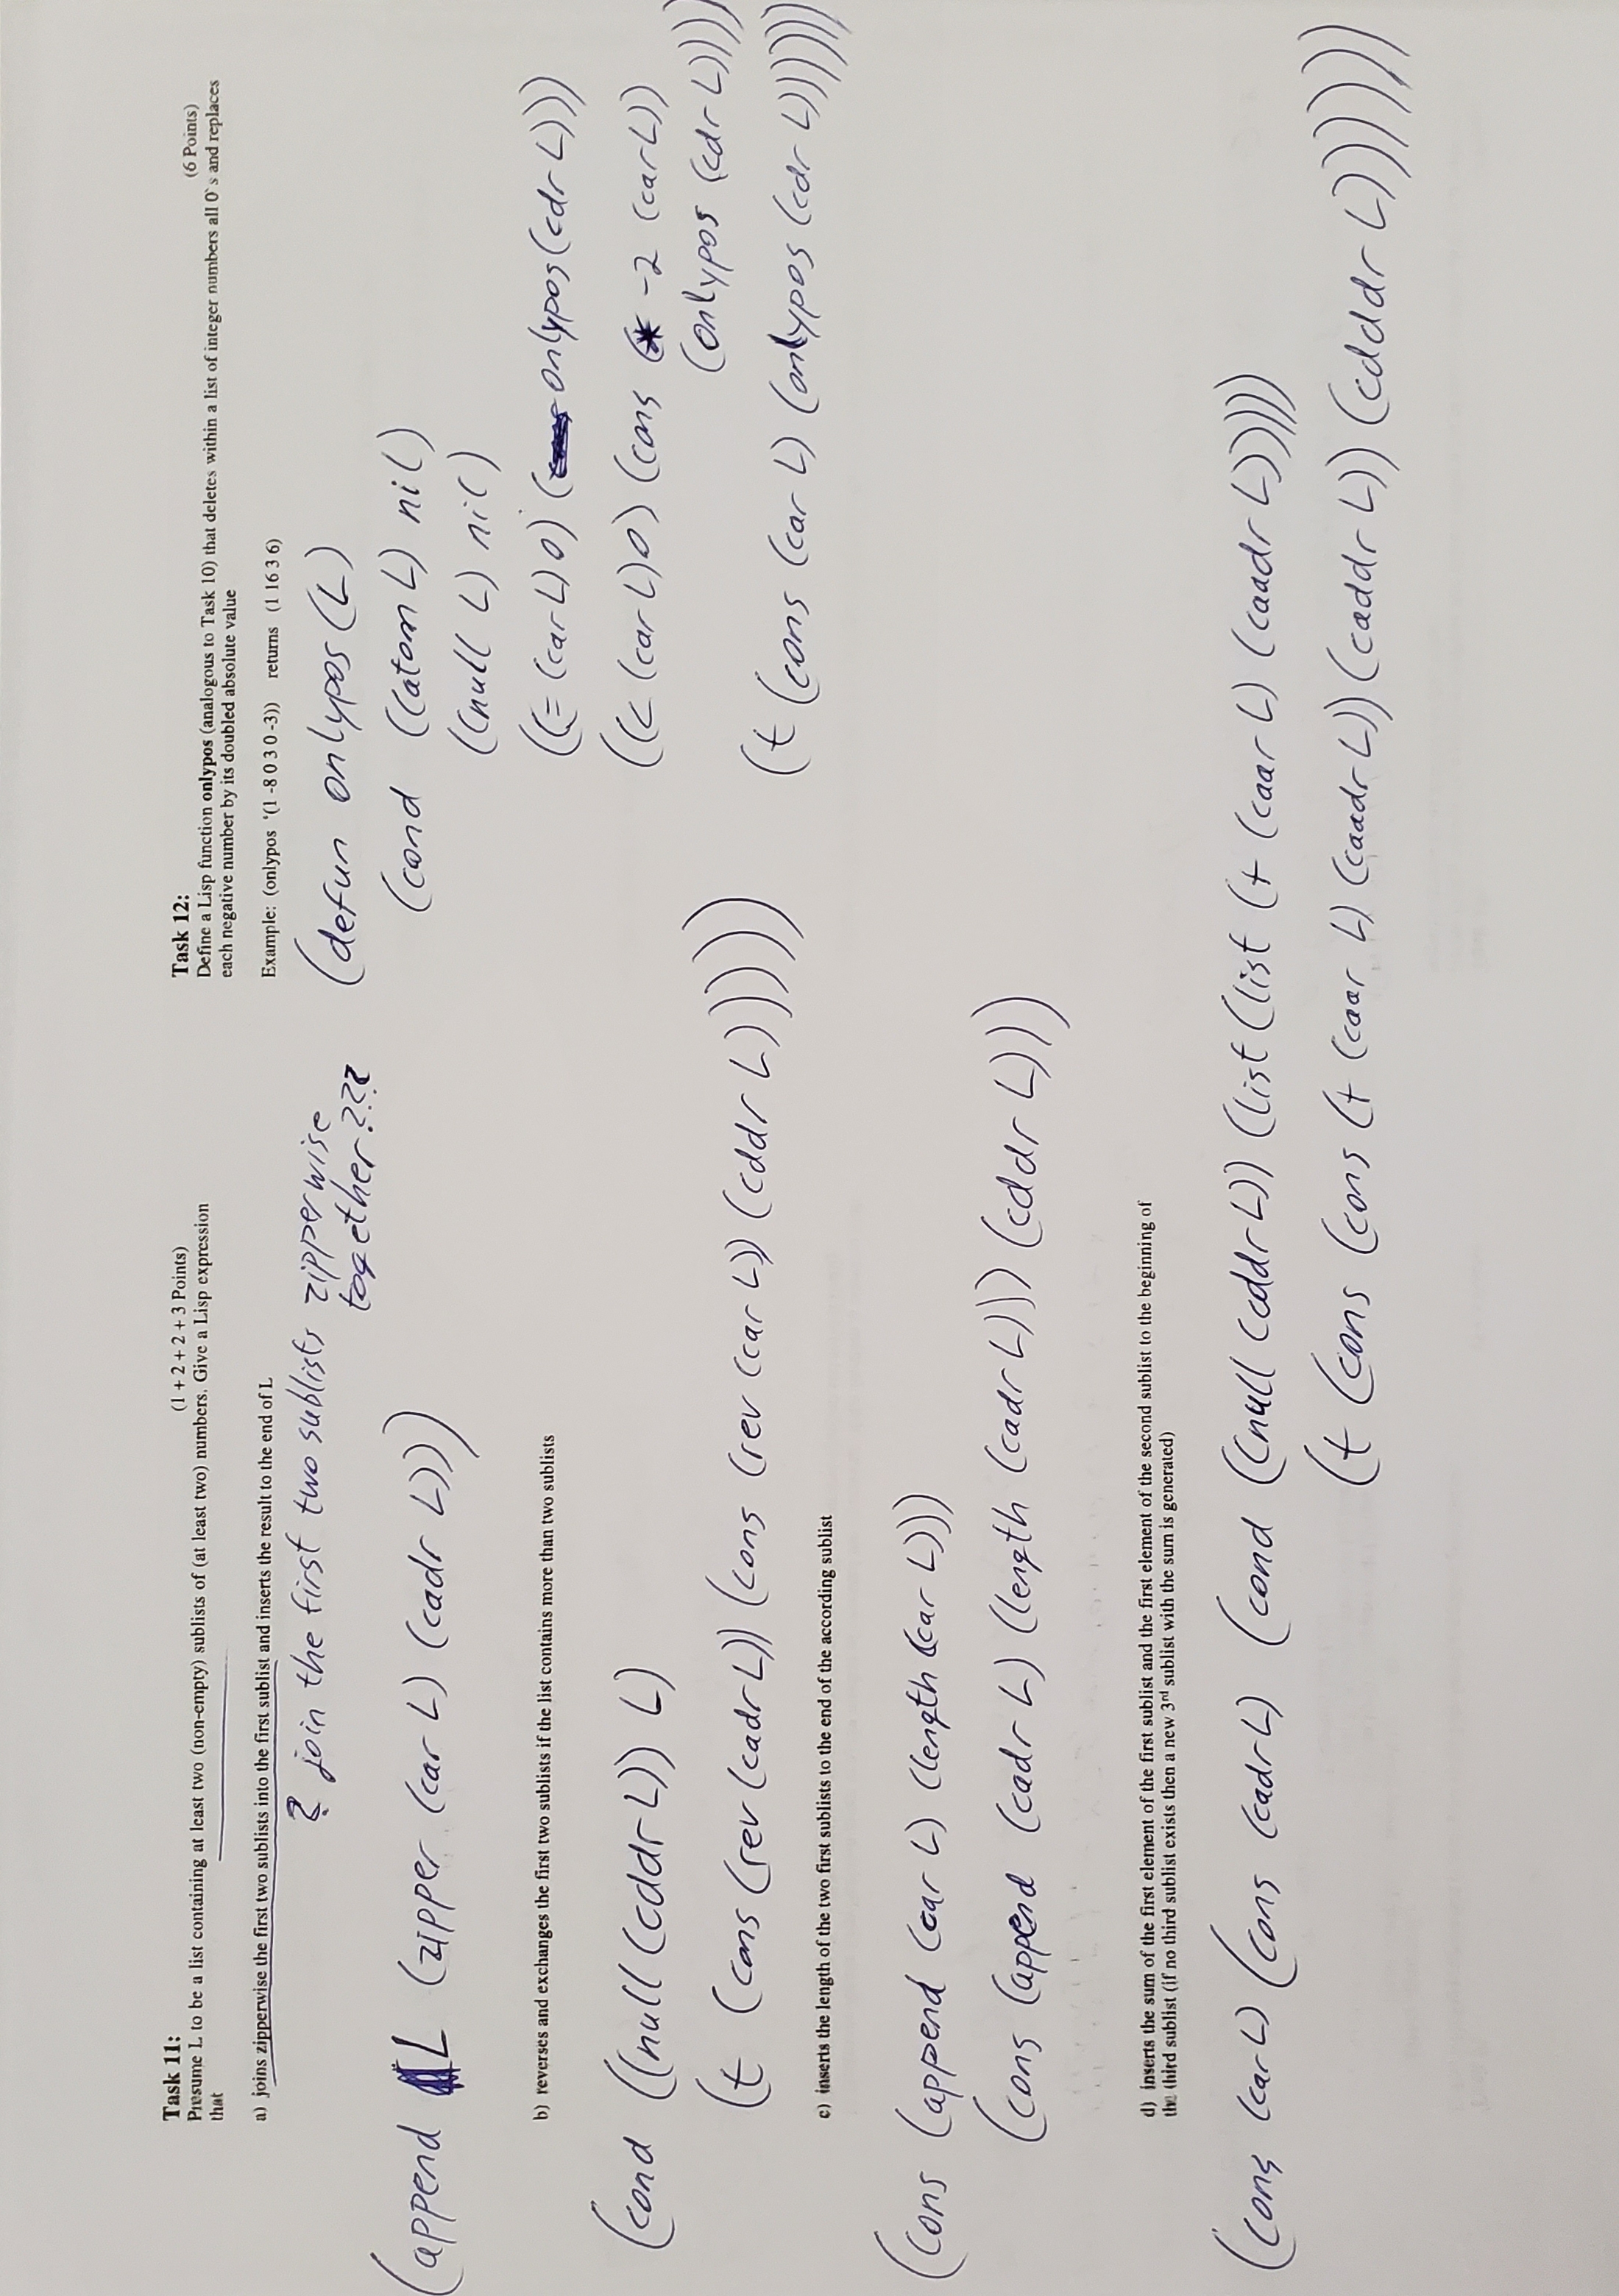 Task 11: (1 + 2 + 2 + 3 Points)
Presume L to be a list containing at least two (non-empty) sublists of (at least two) numbers. Give a Lisp expression
that
a) joins zipperwise the first two sublists into the first sublist and inserts the result to the end of L
? join the first two sublists zipperwise
together???
(append L (zipper (car L) (cadr L)))
b) reverses and exchanges the first two sublists if the list contains more than two sublists
(cond ((null (cddr L)) L)
(t (cons (rev (cadr L)) (cons (rev (car L)) (cddr L)))))
c) inserts the length of the two first sublists to the end of the according sublist
(cons (append (car L) (length (car L)))
(cons (append (cadr L) (length (cadr L))) (cddr L)))
d) inserts the sum of the first element of the first sublist and the first element of the second sublist to the beginning of
the third sublist (if no third sublist exists then a new 3rd sublist with the sum is generated)
(cons (car L) (cons (cadr L) (cond ((null (cddr L)) (list (list (+ (caar L) (caadr L)))))
(t (cons (cons (+ (caar L) (caadr L)) (caddr L)) (cdddr L))))))
Task 12: (6 Points)
Define a Lisp function onlypos (analogous to Task 10) that deletes within a list of integer numbers all 0`s and replaces
each negative number by its doubled absolute value
Example: (onlypos '(1 -8 0 3 0 -3)) returns (1 16 3 6)
(defun onlypos (L)
(cond ((atom L) nil)
((null L) nil)
((= (car L) 0) (onlypos (cdr L)))
((< (car L) 0) (cons (* -2 (car L))
(onlypos (cdr L))))
(t (cons (car L) (onlypos (cdr L))))))